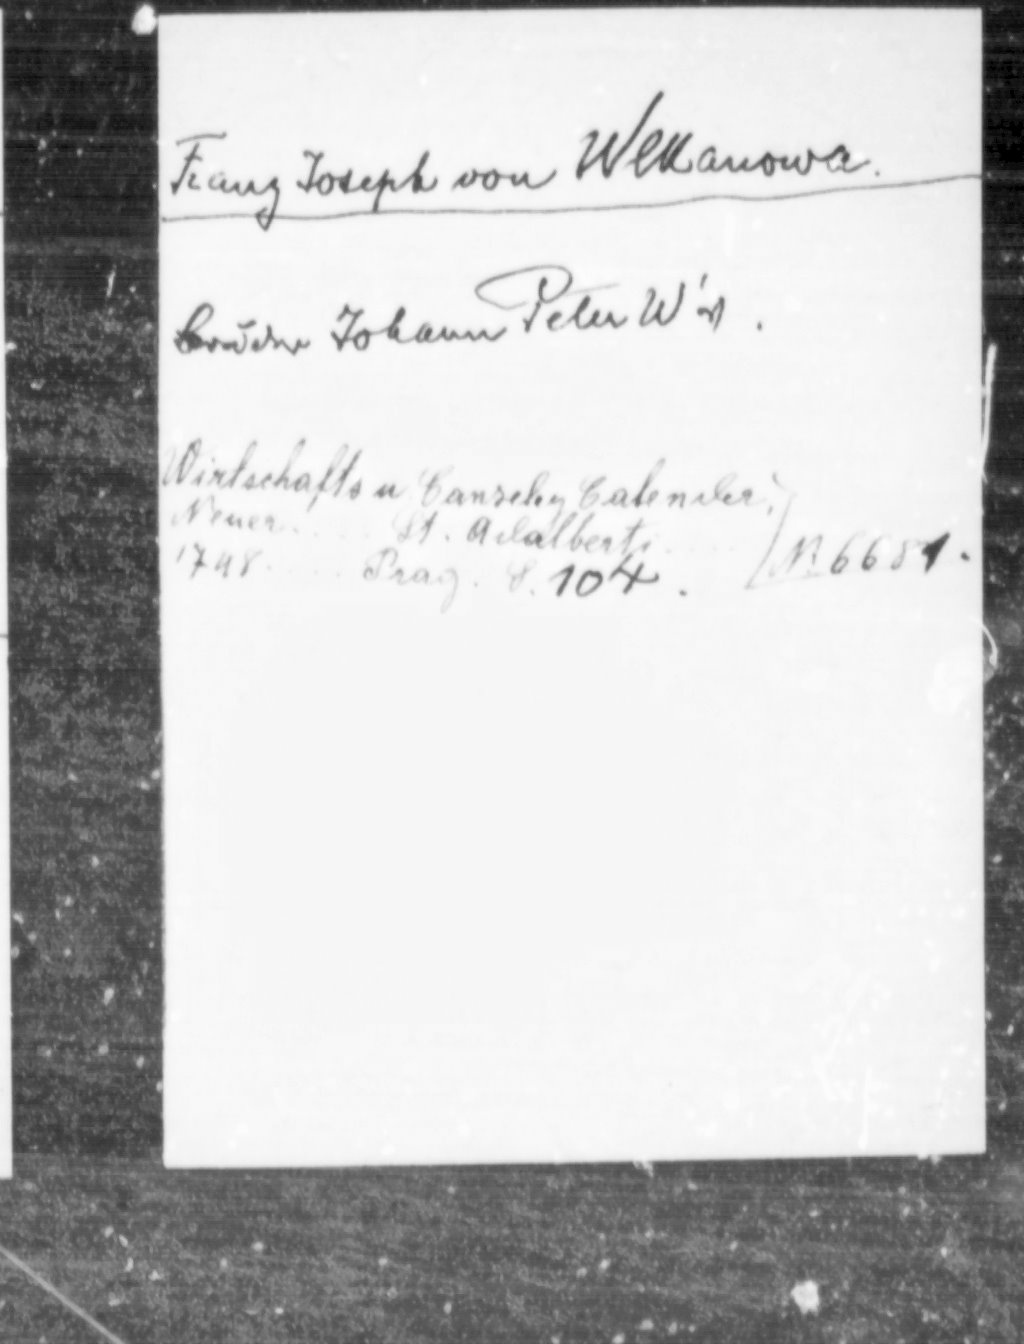 Franz Joseph von Wekanowa.
Bruder Johann Peter W's.
Wirtschafts u Canzeley Calender,
Neuer..... St. Adalberti..... N. 6681.
1748..... Prag. S. 104.